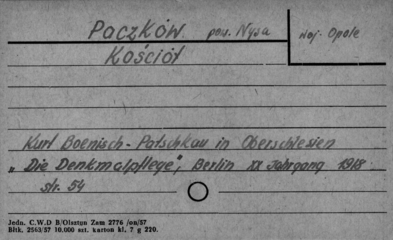 Paczków pow. Nysa woj. Opole
Kościół
Kurt Boenisch - Patschkau in Oberschlesien
"Die Denkmalpflege", Berlin XX Jahrgang 1918
str. 54
Jedn. C.W.D B/Olsztyn Zam 2776 /on/57
Bltk. 2563/57 10.000 szt. karton kl. 7 g 220.